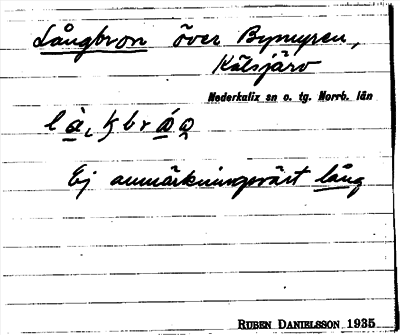 Långbron över Bymyren,
Kälsjärv
Nederkalix sn o. tg. Norrb. län
Ej anmärkningsvärt lång
RUBEN DANIELSSON 1935